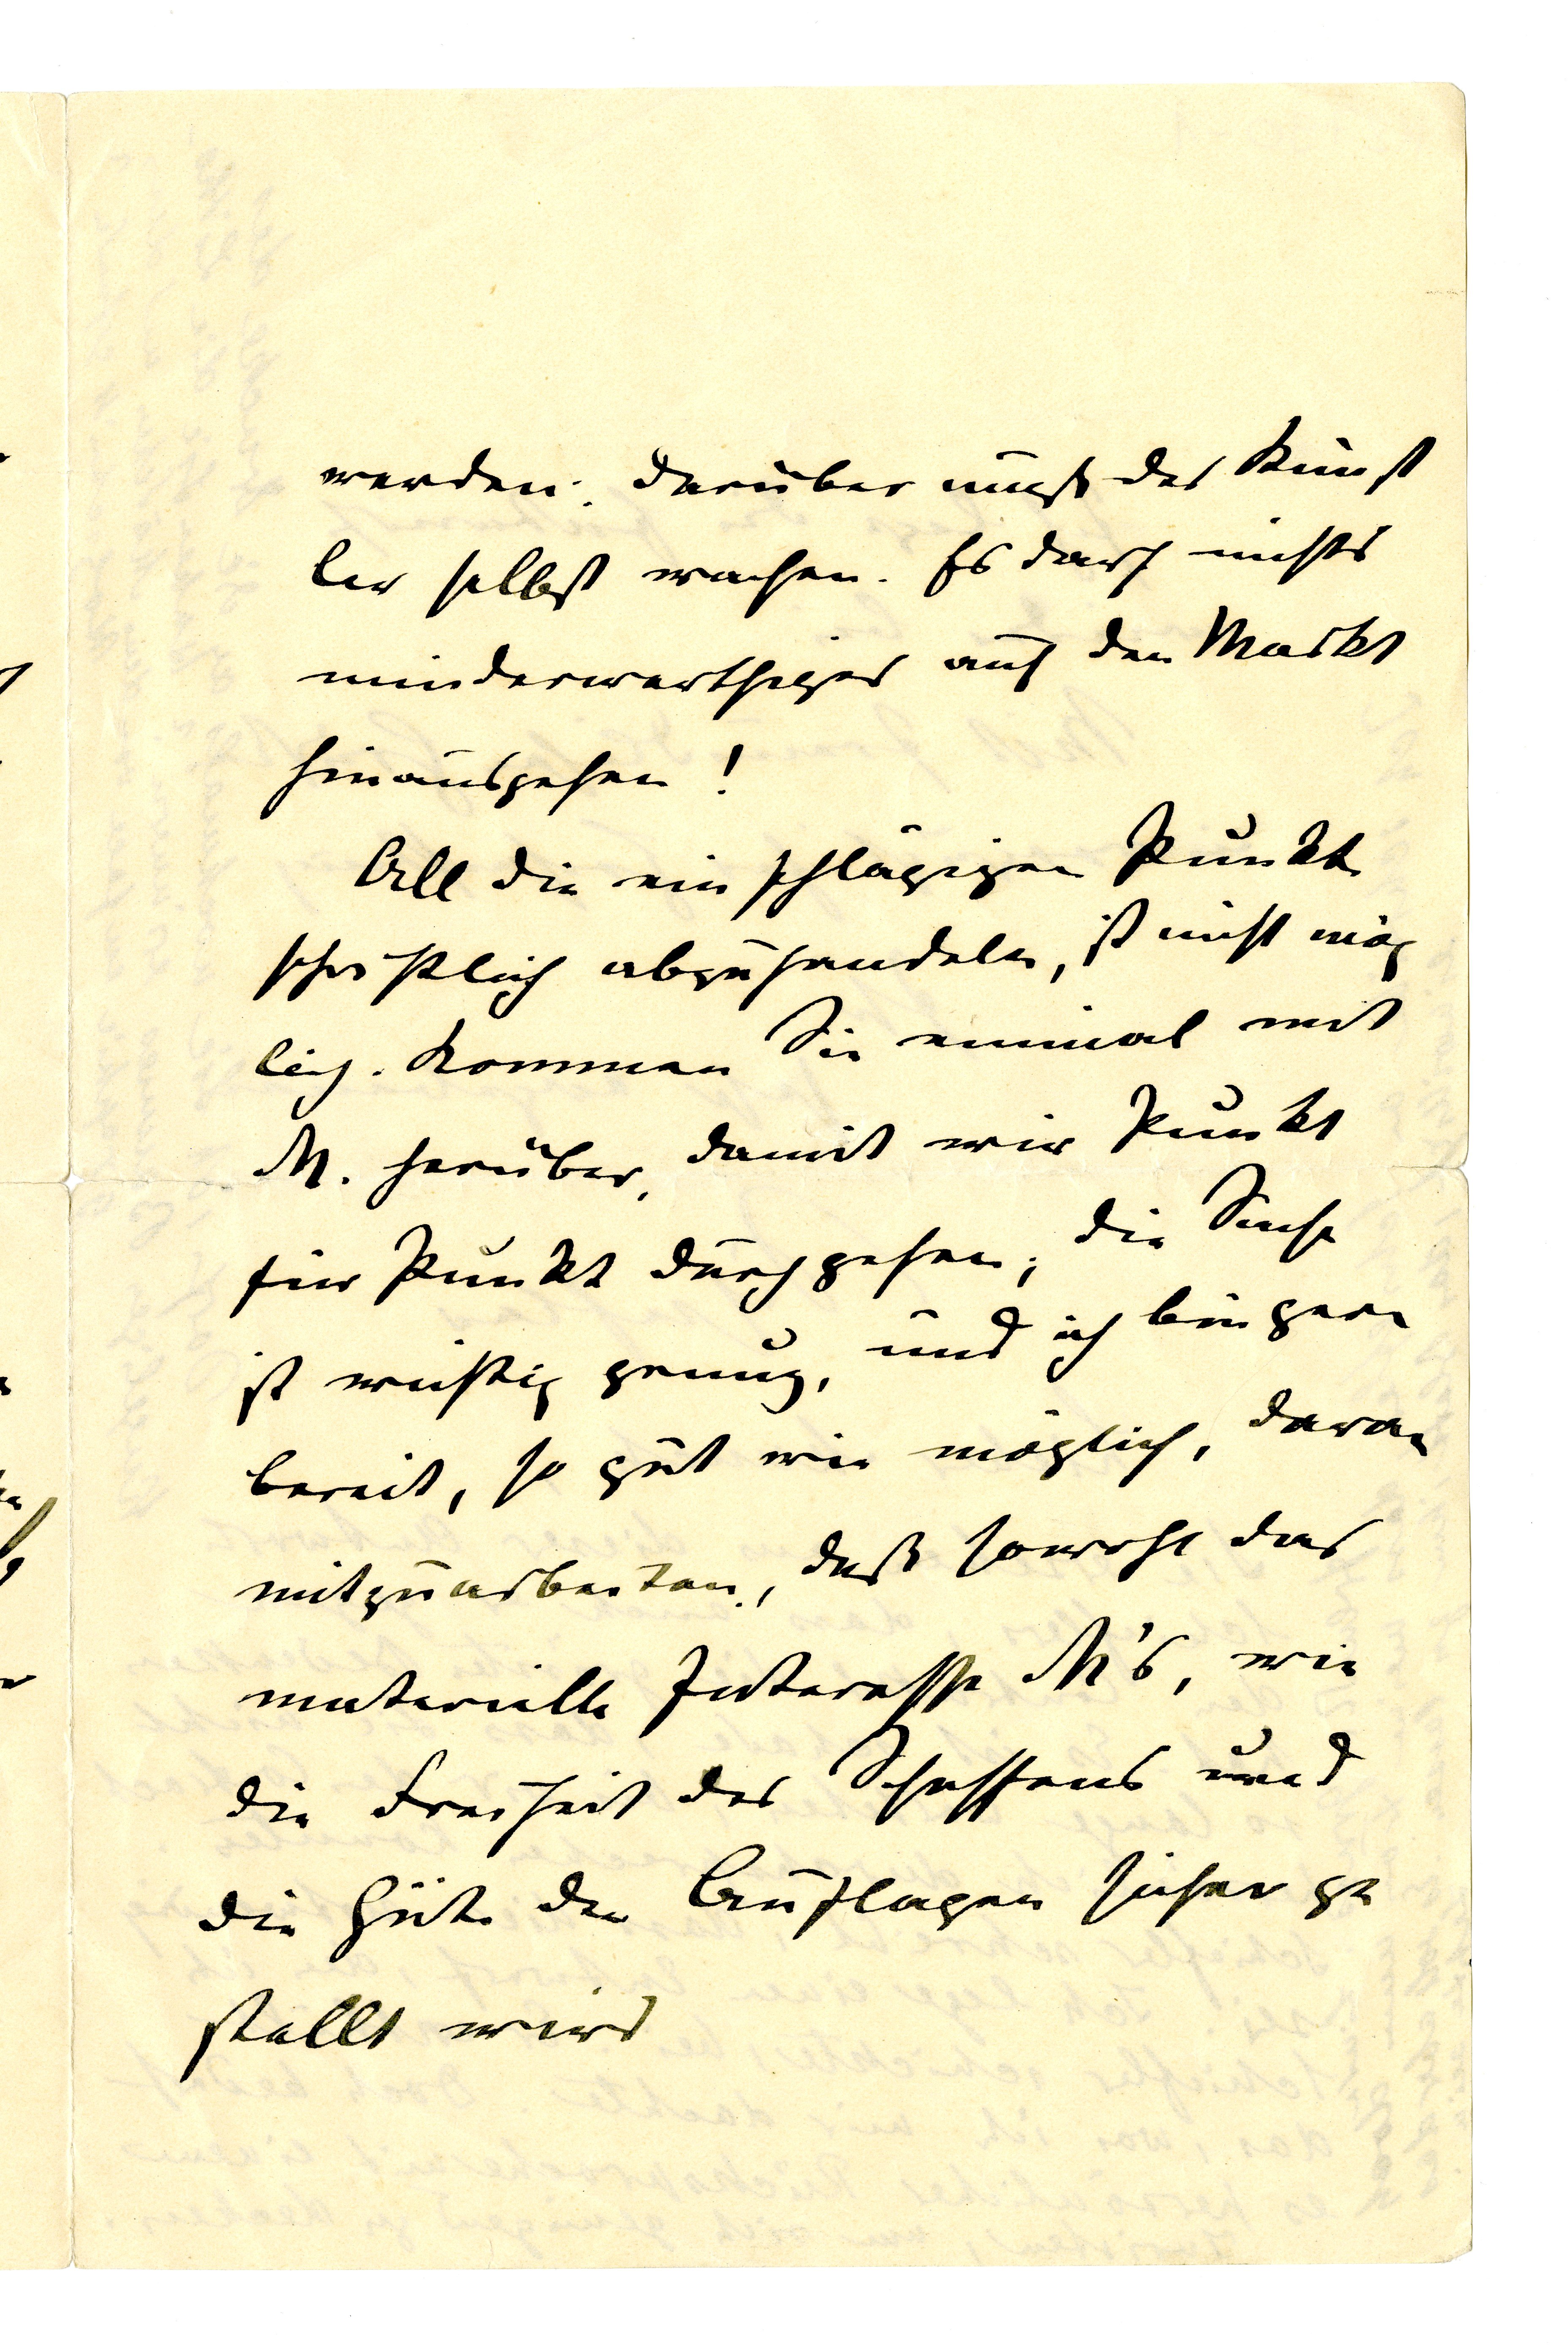 werden; darüber muß der Künst
ler selbst wachen. Es darf nichts
minderwerthiges auf den Markt
hinausgehen!
All die einschlägigen Punkte
schriftlich abzuhandeln, ist nicht mög
lich. Kommen Sie einmal mit
M. herüber, damit wir Punkt
für Punkt durchgehen; die Sache
ist wichtig genug, und ich bin gern
bereit, so gut wie möglich, daran
mitzuarbeiten, daß sowohl das
materielle Interesse M's, wie
die Freiheit des Schaffens und
die Güte der Auflagen sicher ge
stellt wird